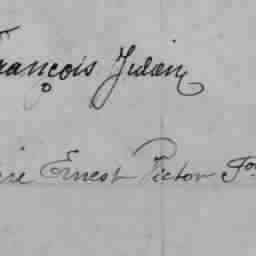 François Julien
Ernest Victor